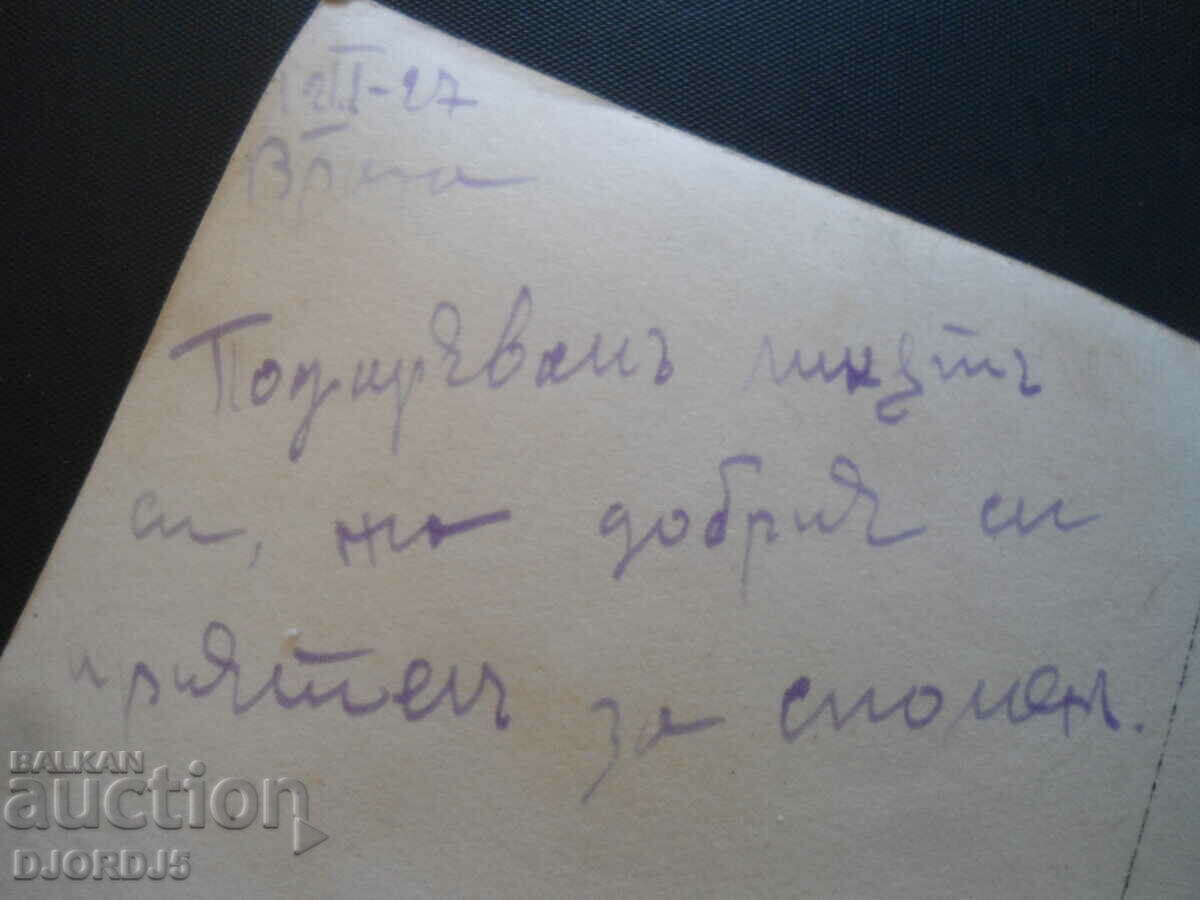 III-27
Враца
Подарявамъ ликътъ
си, на добрия си
приятель за спомен.
BALKAN
auction
DJORDJ5